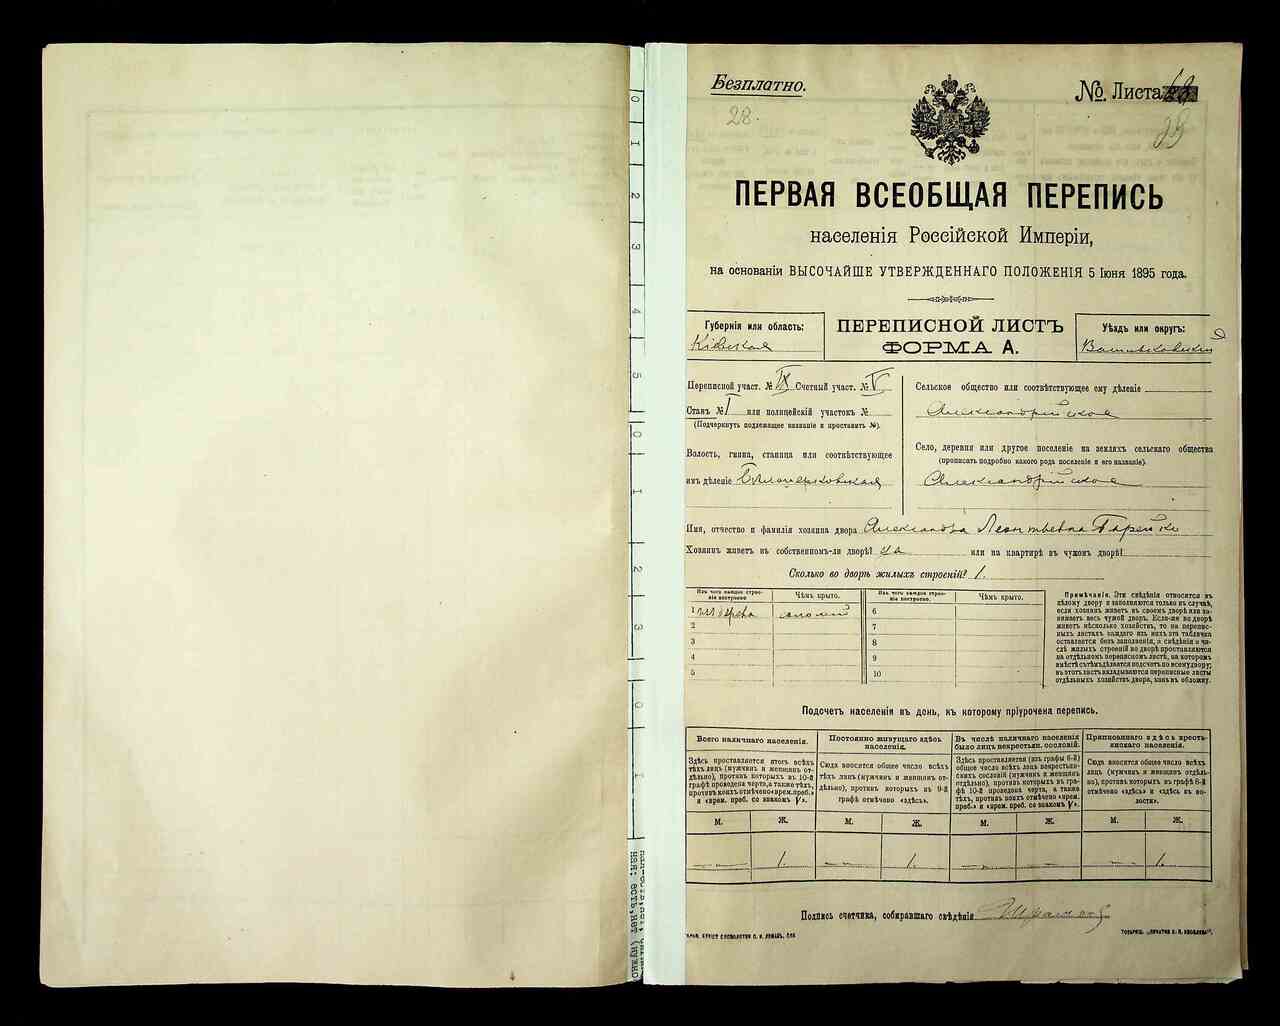 Безплатно.
28.
№ Листа
28
ПЕРВАЯ ВСЕОБЩАЯ ПЕРЕПИСЬ
населенія Россійской Имперіи,
на основаніи ВЫСОЧАЙШЕ УТВЕРЖДЕННАГО ПОЛОЖЕНІЯ 5 Іюня 1895 года.
Губернія или область:
Кіевская
ПЕРЕПИСНОЙ ЛИСТЪ
ФОРМА А.
Уѣздъ или округъ:
Васильковскій
Переписной участ. № IX Счетный участ. № V
Станъ № I или полицейскій участокъ №
(Подчеркнуть подлежащее названіе и проставить №).
Волость, гмина, станица или соотвѣтствующее
имъ дѣленіе Бѣлоцерковская
Сельское общество или соотвѣтствующее ему дѣленіе
Александрійское
Село, деревня или другое поселеніе на земляхъ сельскаго общества
(прописать подробно какого рода поселеніе и его названіе).
Александрійское
Имя, отчество и фамилія хозяина двора Александра Леонтьевна
Хозяинъ живетъ въ собственномъ-ли дворѣ? да или на квартирѣ въ чужомъ дворѣ?
Сколько во дворѣ жилыхъ строеній? 1.
Изъ чего каждое строеніе построено.
Чѣмъ крыто.
Изъ чего каждое строеніе построено.
Чѣмъ крыто.
1 изъ дерева соломой
2
3
4
5
6
7
8
9
10
Примѣчанія. Эти свѣдѣнія относятся къ
цѣлому двору и заполняются только въ случаѣ,
если хозяинъ живетъ въ своемъ дворѣ или за-
нимаетъ весь чужой дворъ. Если-же во дворѣ
живетъ нѣсколько хозяйствъ, то на перепис-
ныхъ листахъ каждаго изъ нихъ эта табличка
оставляется безъ заполненія, а свѣдѣнія о чи-
слѣ жилыхъ строеній во дворѣ проставляются
на отдѣльномъ переписномъ листѣ, на которомъ
вмѣстѣ съ тѣмъ дѣлается подсчетъ по всему двору;
въ этотъ листъ вкладываются переписные листы
отдѣльныхъ хозяйствъ двора, какъ въ обложку.
Подсчетъ населенія въ день, къ которому пріурочена перепись.
Всего наличнаго населенія.
Здѣсь проставляется итогъ всѣхъ
тѣхъ лицъ (мужчинъ и женщинъ от-
дѣльно), противъ которыхъ въ 10-й
графѣ проведена черта, а также тѣхъ,
противъ коихъ отмѣчено «врем. преб.»
и «врем. преб. со знакомъ V».
Постоянно живущаго здѣсь
населенія.
Сюда вносится общее число всѣхъ
тѣхъ лицъ (мужчинъ и женщинъ от-
дѣльно), противъ которыхъ въ 9-й
графѣ отмѣчено «здѣсь».
Въ числѣ наличнаго населенія
было лицъ некрестьян. сословій.
Здѣсь проставляется (изъ графы 6-й)
общее число всѣхъ лицъ некрестьян-
скихъ сословій (мужчинъ и женщинъ
отдѣльно), противъ которыхъ въ гра-
фѣ 10-й проведена черта, а также
тѣхъ, противъ коихъ отмѣчено «врем.
преб.» и «врем. преб. со знакомъ V».
Приписаннаго здѣсь кресть-
янскаго населенія.
Сюда вносится общее число всѣхъ
лицъ (мужчинъ и женщинъ отдѣль-
но), противъ которыхъ въ графѣ 8-й
отмѣчено «здѣсь» и «здѣсь въ во-
лости».
М. Ж. М. Ж. М. Ж. М. Ж.
— 1. — 1. — — — 1.
Подпись счетчика, собиравшаго свѣдѣнія